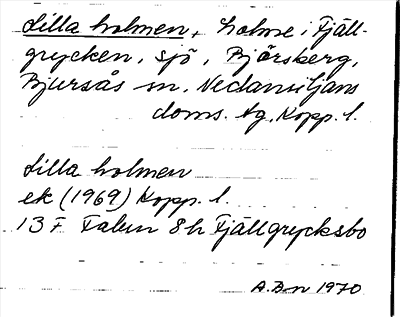 Lilla holmen, holme i Fjäll-
grycken, sjö, Björsberg,
Bjursås sn. Nedansiljans
doms. tg, Kopp. l.
Lilla holmen
ek (1969) Kopp. l.
13 F Falun 8h Fjällgrycksbo
A.B-n 1970